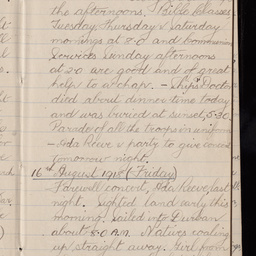 the afternoons. Bible Classes
Tuesday, Thursday & Saturday
mornings at 8-0 and
Services Sunday afternoons
at 2-0 are good and of great
help to a chap. - Ships Doctor
died about dinner time today
and was buried at sunset, 5-30.
Parade of all the troops in uniform
- Ada Reeve & party to give concert
tomorrow night.
16th August 1918 (Friday)
Farewell concert, Ada Reeve, last
night. Sighted land early this
morning. Sailed into Durban
about 8-0 A.M. Natives coaling
up straight away. Girl from